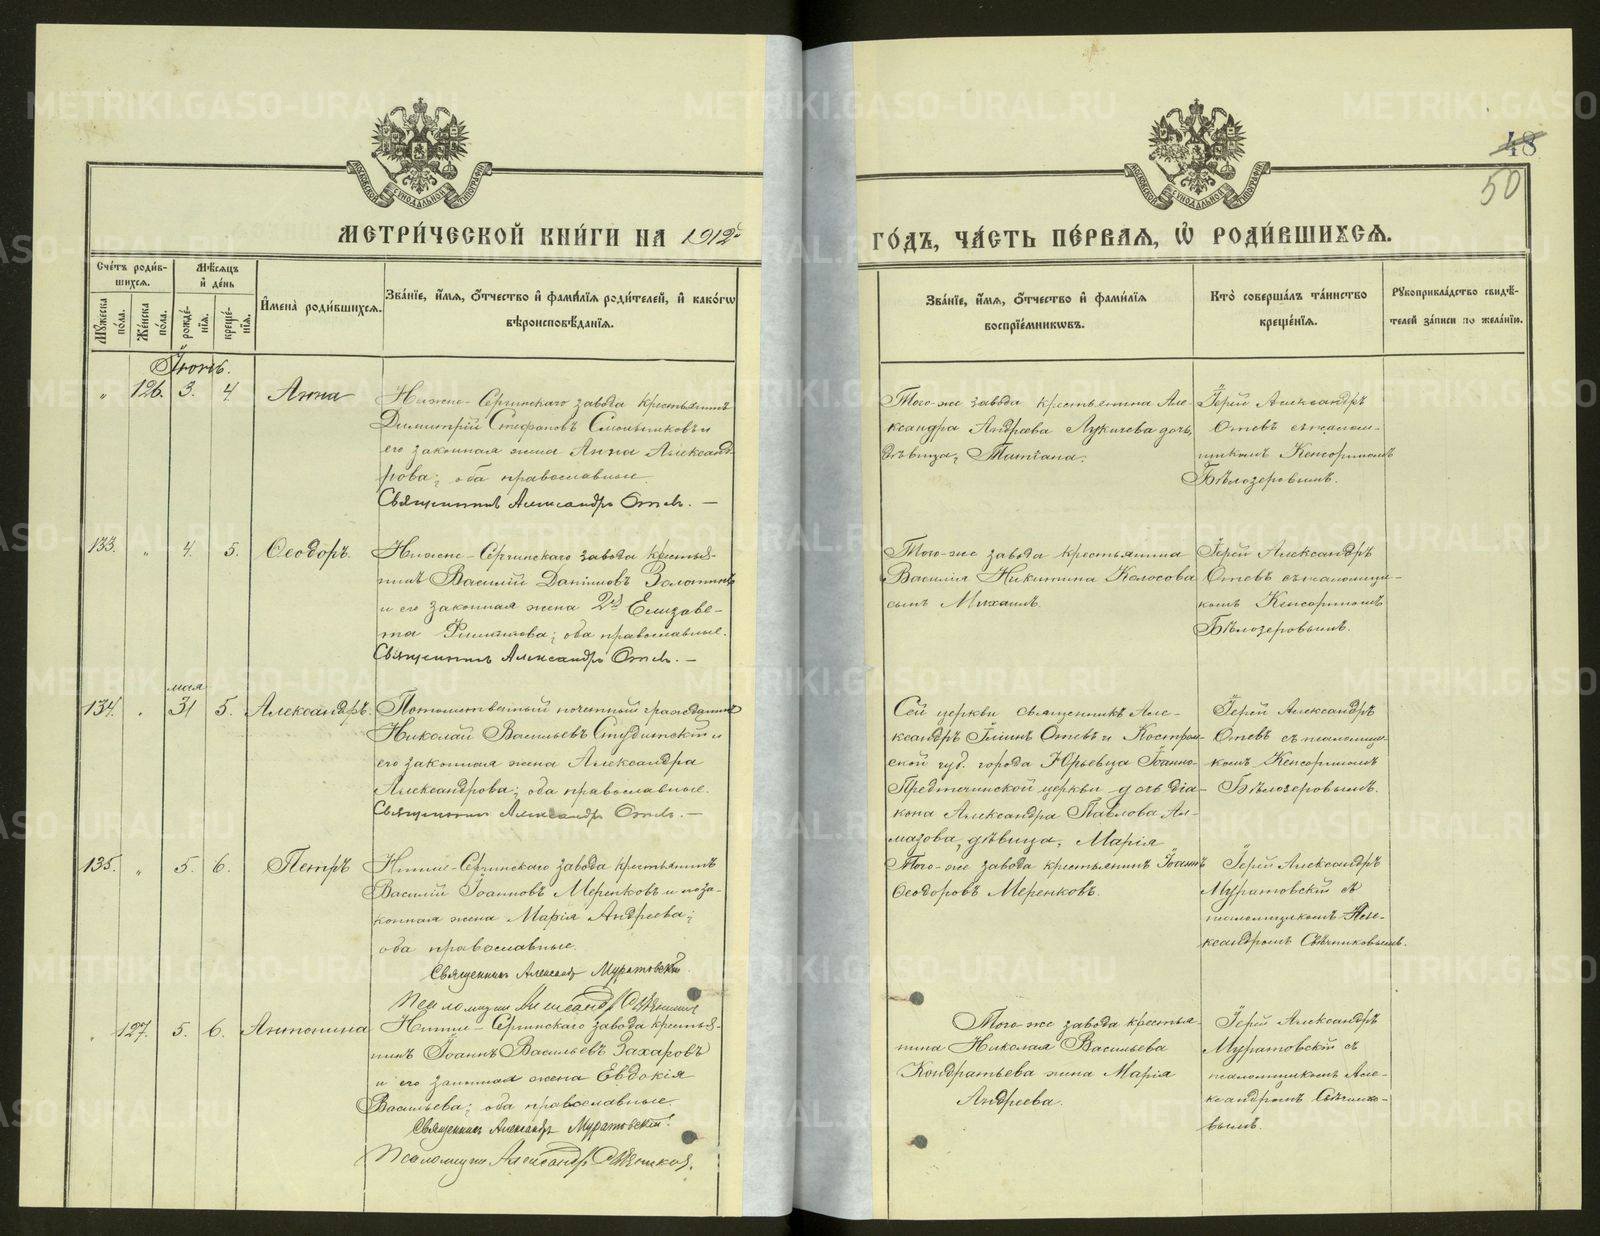 48
50
МОСКОВСКОЙ СУНОДАЛЬНОЙ ТИПОГРАФІИ
МОСКОВСКОЙ СУНОДАЛЬНОЙ ТИПОГРАФІИ
МЕТРИ́ЧЕСКОЙ КНИ́ГИ НА 1912й
ГО́ДЪ, ЧА́СТЬ ПЕ́РВАЯ, Ѡ҆ РОДИ́ВШИХСЯ.
Сче́тъ роди́в-
шихся.
Мѣ́сяцъ
и҆ де́нь
Мꙋ́жеска по́ла.
Же́нска по́ла.
рожде́-
нїя.
креще́-
нїя.
И҆мена̀ роди́вшихся.
Зва́нїе, и҆́мя, ѻ҆́тчество и҆ фами́лїя роди́телей, и҆ како́гѡ
вѣроисповѣ́данїя.
Зва́нїе, и҆́мя, ѻ҆́тчество и҆ фами́лїя
воспрїе́мникѡвъ.
Кто̀ соверша́лъ та́инство
креще́нїя.
Рꙋкоприкла́дство свидѣ́-
телей за́писи по жела́нїю.
Іюнь.
" 126. 3. 4. Анна
Нижне-Сергинскаго завода крестьянинъ
Димитрій Стефановъ
его законная жена Анна Александ-
рова; оба православные
Священникъ Александръ Отевъ. —
Того-же завода крестьянина Але-
ксандра Андреева Лукичева дочь,
дѣвица, Татіана.
Іерей Александръ
Отевъ съ псалом-
щикомъ Кенсориномъ
Бѣлозеровымъ.
133. " 4. 5. Ѳеодоръ.
Нижне-Сергинскаго завода крестья-
нинъ Василій Даніиловъ Золотинъ
и его законная жена 2й Елизаве-
та Филиппова; оба православные.
Священникъ Александръ Отевъ. —
Того-же завода крестьянина
Василія Никитина Колосова
сынъ Михаилъ.
Іерей Александръ
Отевъ съ псаломщи-
комъ Кенсориномъ
Бѣлозеровымъ.
мая
134. " 31 5. Александръ.
Потомственный почетный гражданинъ
Николай Васильевъ Студитскій и
его законная жена Александра
Александрова; оба православные.
Священникъ Александръ Отевъ. —
Сей церкви священникъ Але-
ксандръ Іоаннъ Отевъ и Костром-
ской губ. города Юрьевца Іоанно-
Предтечинской церкви дочь діа-
кона Александра Павлова Ал-
мазова, дѣвица, Марія
Іерей Александръ
Отевъ съ псаломщи-
комъ Кенсориномъ
Бѣлозеровымъ.
135. " 5. 6. Петръ
Нижне-Сергинскаго завода крестьянинъ
Василій Іоанновъ Меренковъ и его за-
конная жена Марія Андреева;
оба православные.
Священникъ Александръ Муратовскій.
Псаломщикъ Александръ Свѣчниковъ
Того-же завода крестьянинъ Іоаннъ
Ѳеодоровъ Меренковъ.
Іерей Александръ
Муратовскій съ
псаломщикомъ Але-
ксандромъ Свѣчниковымъ.
" 127. 5. 6. Антонина
Нижне-Сергинскаго завода крестья-
нинъ Іоаннъ Васильевъ Захаровъ
и его законная жена Евдокія
Васильева; оба православные.
Священникъ Александръ Муратовскій.
Псаломщикъ Александръ Свѣчниковъ.
Того-же завода крестья-
нина Николая Васильева
Кондратьева жена Марія
Андреева.
Іерей Александръ
Муратовскій съ
псаломщикомъ Але-
ксандромъ Свѣчнико-
вымъ.